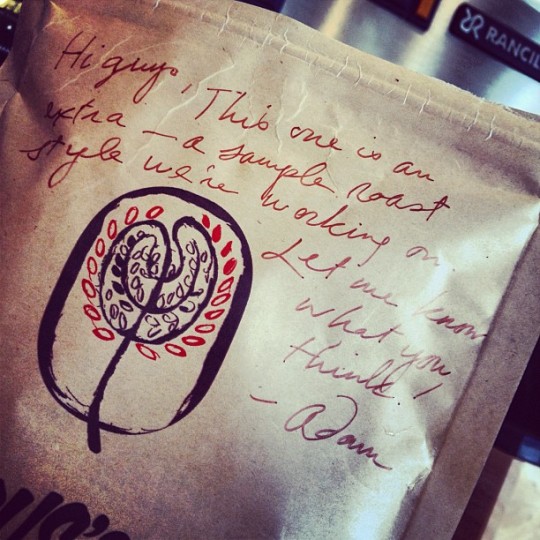 RANCIL
Hi guys, This one is an
extra – a sample roast
style we're working on.
Let me know
what you
think!
- Adam
US'S